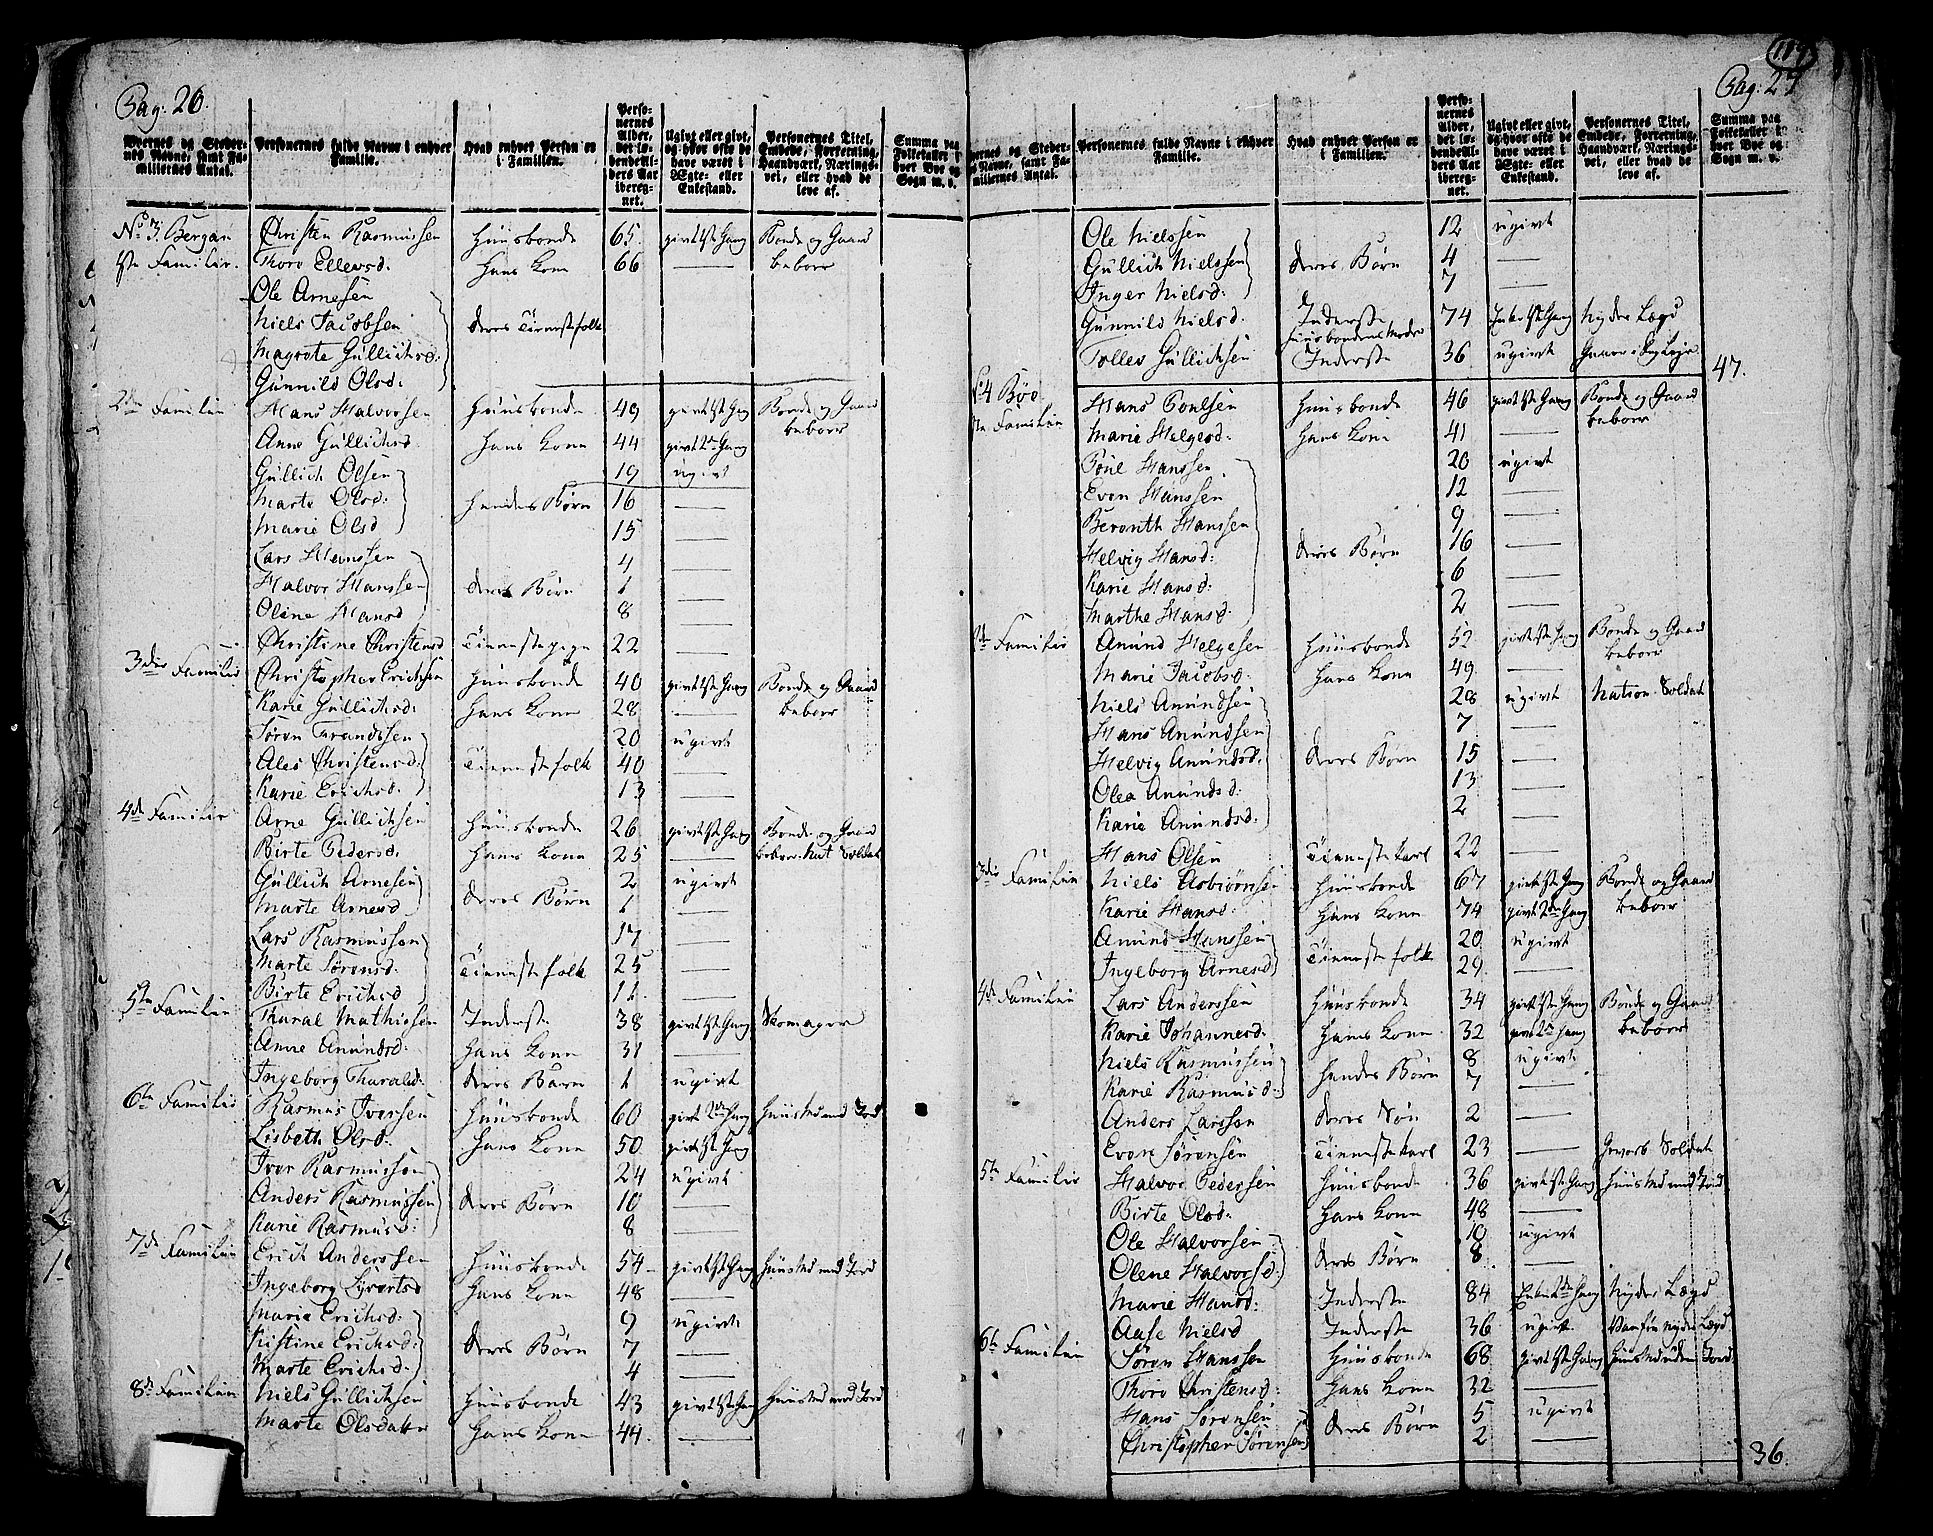 Pag: 26.
Personernes fulde Navne i enhver Familie.
Hvad enhver Person er i Familien.
Personernes Alder, det løbende Alders Aar iberegnet.
Ugivt eller givt, og hvor ofte de have været i Ægte- eller Enkestand.
Personernes Titel, Embede, Forretning, Haandværk, Næringsvei, eller hvad de leve af.
No 3. Bergan Christen Rasmussen Huusbonde 65. givt 1ste Gang Bonde og Gaard
1ste Familie. Thoro Ellevsd. Hans Kone 66 — beboer
Ole Arnesen
Niels Jacobsen deres Tienestefolk
Magrete Gullichsd:
Gunnild Olsd:
2den Familie Hans Halvorsen Huusbonde 49 givt 1ste Gang Bonde og Gaard
Anne Gullichsd. Hans Kone 44 givt 2den Gang beboer
Gullich Olsen 19 ugivt
Marte Olsd: Hendes Børn 16 —
Marie Olsd 15 —
Lars Hanssen 4 —
Halvor Hanssen deres Børn 1 —
Olene Hansd 8 —
Christine Christensd Tienestepige 22 —
3die Familie Christopher Erichsen Huusbonde 40 givt 1ste Gang Bonde og Gaard
Karie Gullichsd: Hans Kone 28 — beboer
Søren Trandssen 20 ugivt
Ales Christensd. Tienestefolk 40 —
Karie Erichsd. 13 —
4de Familie Arne Gullichsen Huusbonde 26 givt 1ste Gang Bonde og Gaard
Birte Pedersd. Hans Kone 25 — beboer. Nat. Soldat
Gullich Arnesen 2 ugivt
Marte Arnesd deres Børn 1 —
Lars Rasmussen 17 —
Marte Sørensd. Tienestefolk 25 —
Birte Erichsd 11. —
5te Familie Tharal Mathiesen Inderste 38 givt 1ste Gang Skomager
Anne Amundsd: Hans Kone 31 —
Ingeborg Tharalsd: deres Barn 1 ugivt
6te Familie Rasmus Iversen Huusbonde 60 givt 2den Gang Huusmd med Jord
Lisbeth Olsd. Hans Kone 50 givt 1ste Gang
Iver Rasmussen 24 ugivt
Anders Rasmussen deres Børn 10 —
Karie Rasmusd: 8 —
7de Familie Erich Anderssen Huusbonde 54 givt 1ste Gang Huusmd med Jord
Ingeborg Syvertsd Hans Kone 48 —
Marie Erichsd: 9 ugivt
Kistine Erichsd: deres Børn 7 —
Marte Erichsd: 4 —
8de Familie Niels Gullichsen Huusbonde 43 givt 1ste Gang Huusmd med Jord
Marte Olsdatter Hans Kone 44. —
119
Pag: 27
Personernes fulde Navne i enhver Familie.
Hvad enhver Person er i Familien.
Personernes Alder, det løbende Alders Aar iberegnet.
Ugivt eller givt, og hvor ofte de have været i Ægte- eller Enkestand.
Personernes Titel, Embede, Forretning, Haandværk, Næringsvei, eller hvad de leve af.
Summa paa Folketallet i hver Bye og Sogn m. v.
Ole Nielssen 12 ugivt
Gullich Nielssen deres Børn 4 —
Inger Nielsd. 7 —
Gunnild Nielsd. Inderste Huusbondens Moder 74 Enke 1ste Gang Nyder Lægd
Tollev Gullichsen Inderste 36 ugivt
47.
No 4 Bøe Hans Poulsen Huusbonde 46 givt 1ste Gang Bonde og Gaard
1te Familie Marie Helgesd. Hans Kone 41 — beboer
Poul Hanssen 20 ugivt
Even Hanssen 12 —
Beronth Hanssen 9 —
Helvig Hansd: deres Børn 16 —
Karie Hansd: 6 —
Marthe Hansd: 2 —
2den Familie Amund Helgesen Huusbonde 52 givt 1ste Gang Bonde og Gaard
Marie Jacobsd. Hans Kone 49 — beboer
Niels Amundsen 28 ugivt Nation: Soldat
Hans Amundsen 7 —
Helvig Amundsd. deres Børn 15 —
Olea Amundsd: 13 —
Karie Amundsd: 2 —
Hans Olsen Tienestekarl 22 —
3die Familie Niels Asbiørnsen Huusbonde 67 givt 1ste Gang Bonde og Gaard
Karie Hansd: Hans Kone 74 givt 2den Gang beboer
Amund Hanssen 20 ugivt
Ingeborg Arnesd Tienestefolk 29 —
4de Familie Lars Anderssen Huusbonde 34 givt 1ste Gang Bonde og Gaard
Karie Johannesd: Hans Kone 32 givt 2den Gang beboer
Niels Rasmussen 8 ugivt
Karie Rasmusd: Hendes Børn 7 —
Anders Larssen deres Søn 2 —
Even Sørensen Tienestekarl 23 — Gevorb. Soldat
5te Familie Halvor Pedersen Huusbonde 36 givt 1ste Gang Huusmd med Jord
Birte Olsd: Hans Kone 48 —
Ole Halvorsen 10 ugivt
Olene Halvorsd: deres Børn 8 —
Marie Hansd: Inderste 84 Enke 2den Gang Nyder Lægd
Aase Nielsd Inderste 36 ugivt Vanfør nyder Lægd
6te Familie Søren Hanssen Huusbonde 68 givt 1ste Gang Huusmd uden Jord
Thoro Christensd: Hans Kone 32 —
Hans Sørensen 5 ugivt
Christopher Sørensen deres Børn 2 —
36.